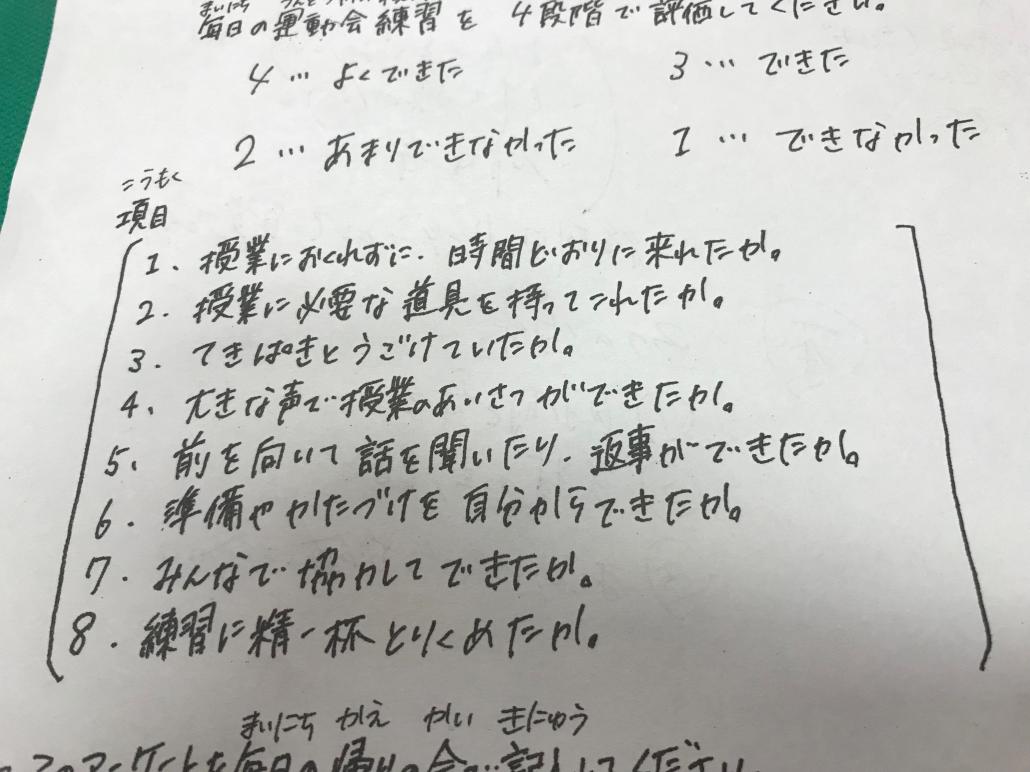 まいにち
毎日の運動会練習を 4段階で評価してください。
4 … よくできた 3 … できた
2 … あまりできなかった 1 … できなかった
こうもく
項目
1. 授業におくれずに、時間どおりに来れたか。
2. 授業に必要な道具を持ってこれたか。
3. てきぱきとうごけていたか。
4. 大きな声で授業のあいさつができたか。
5. 前を向いて話を聞いたり、返事ができたか。
6. 準備やかたづけを自分からできたか。
7. みんなで協力してできたか。
8. 練習に精一杯とりくめたか。
まいにち かえ かい きにゅう
このアンケートを毎日の帰りの会で記入してください。